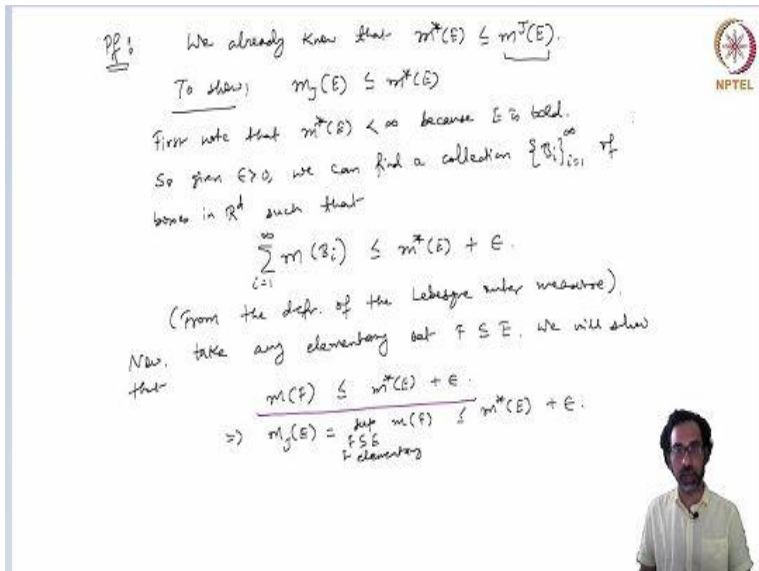 Pf: We already know that m*(E) ≤ m^J(E).
NPTEL
To show: m_J(E) ≤ m*(E)
First note that m*(E) < ∞ because E is bdd.
So given ε>0, we can find a collection {B_i}_{i=1}^∞ of
boxes in R^d such that
∑_{i=1}^∞ m(B_i) ≤ m*(E) + ε.
(From the defn. of the Lebesgue outer measure).
Now, take any elementary set F ⊆ E. We will show
that
m(F) ≤ m*(E) + ε.
⇒) m_J(E) = sup_{F⊆E F elementary} m(F) ≤ m*(E) + ε.